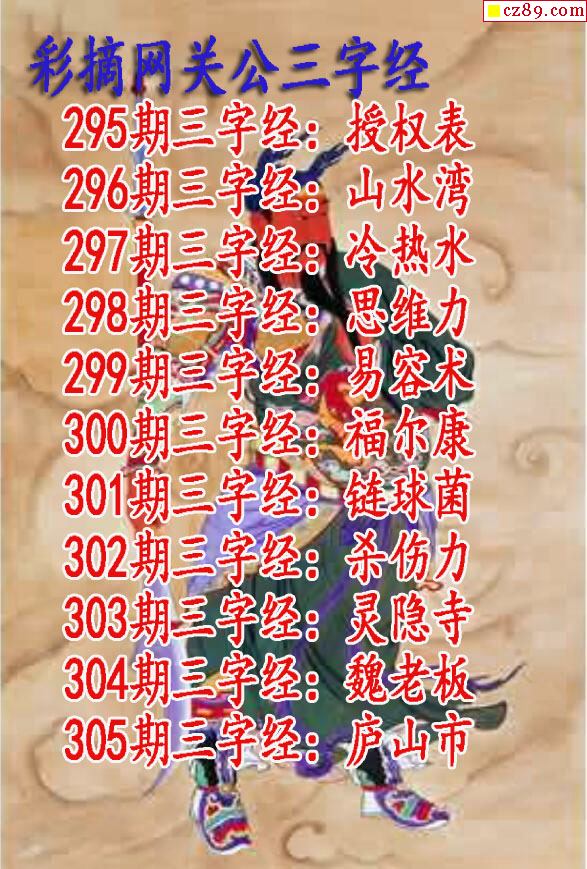 cz89.com
彩摘网关公三字经
295期三字经：授权表
296期三字经：山水湾
297期三字经：冷热水
298期三字经：思维力
299期三字经：易容术
300期三字经：福尔康
301期三字经：链球菌
302期三字经：杀伤力
303期三字经：灵隐寺
304期三字经：魏老板
305期三字经：庐山市